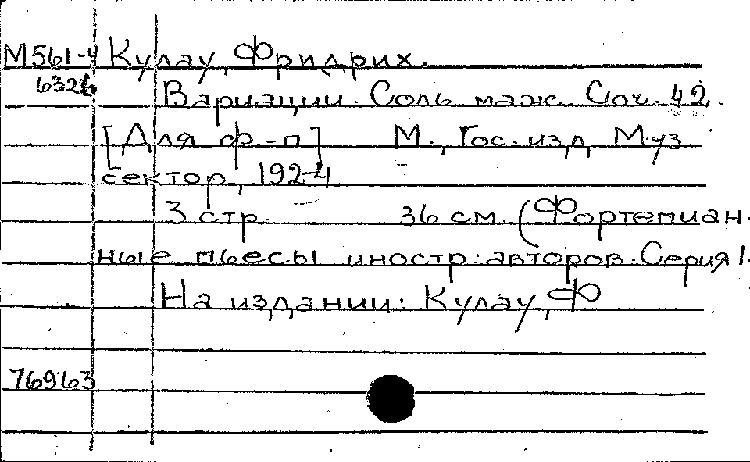 М561-4 Кулау, Фридрих.
6326 Вариации. Соль маж. Соч. 42.
[Для ф-п] М., Гос. изд. Муз
сектор, 1924
3 стр. 36 см. (Фортепиан-
ные пьесы иностр. авторов. Серия 1.
На издании: Кулау, Ф
76963